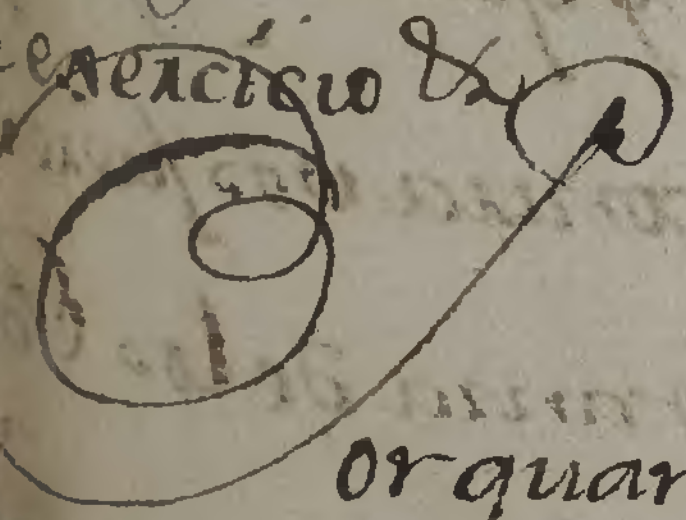 exercicio &
or quan